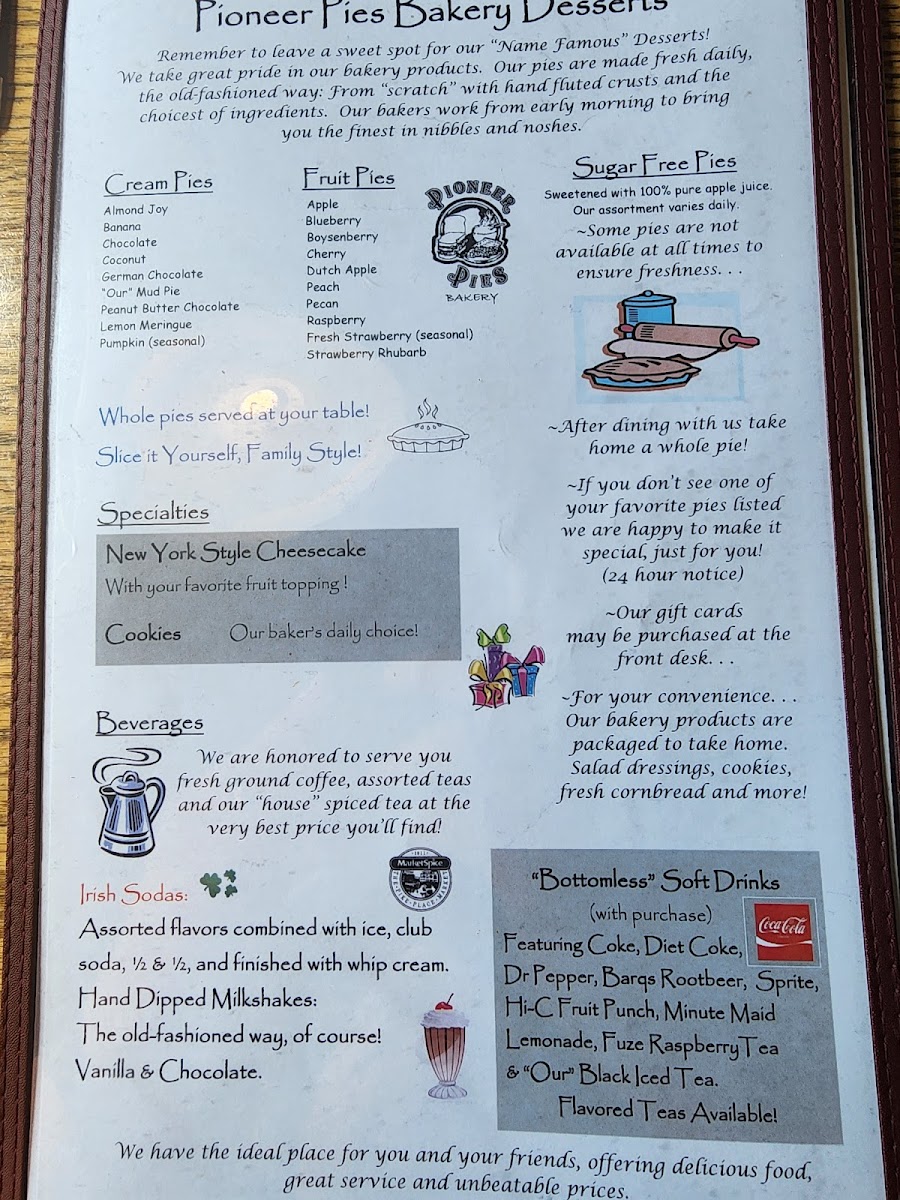 Pioneer Pies Bakery Desserts
Remember to leave a sweet spot for our "Name Famous" Desserts!
We take great pride in our bakery products. Our pies are made fresh daily,
the old-fashioned way: From "scratch" with hand fluted crusts and the
choicest of ingredients. Our bakers work from early morning to bring
you the finest in nibbles and noshes.
Cream Pies
Almond Joy
Banana
Chocolate
Coconut
German Chocolate
"Our" Mud Pie
Peanut Butter Chocolate
Lemon Meringue
Pumpkin (seasonal)
Fruit Pies
Apple
Blueberry
Boysenberry
Cherry
Dutch Apple
Peach
Pecan
Raspberry
Fresh Strawberry (seasonal)
Strawberry Rhubarb
PIONEER
PIES
BAKERY
Sugar Free Pies
Sweetened with 100% pure apple juice.
Our assortment varies daily.
~Some pies are not
available at all times to
ensure freshness. . .
Whole pies served at your table!
Slice it Yourself, Family Style!
~After dining with us take
home a whole pie!
~If you don't see one of
your favorite pies listed
we are happy to make it
special, just for you!
(24 hour notice)
~Our gift cards
may be purchased at the
front desk. . .
~For your convenience. . .
Our bakery products are
packaged to take home.
Salad dressings, cookies,
fresh cornbread and more!
Specialties
New York Style Cheesecake
With your favorite fruit topping !
Cookies Our baker's daily choice!
Beverages
We are honored to serve you
fresh ground coffee, assorted teas
and our "house" spiced tea at the
very best price you'll find!
MarketSpice
PIKE PLACE MARKET
Irish Sodas:
Assorted flavors combined with ice, club
soda, ½ & ½, and finished with whip cream.
Hand Dipped Milkshakes:
The old-fashioned way, of course!
Vanilla & Chocolate.
"Bottomless" Soft Drinks
(with purchase)
Coca-Cola
Featuring Coke, Diet Coke,
Dr Pepper, Barqs Rootbeer, Sprite,
Hi-C Fruit Punch, Minute Maid
Lemonade, Fuze Raspberry Tea
& "Our" Black Iced Tea.
Flavored Teas Available!
We have the ideal place for you and your friends, offering delicious food,
great service and unbeatable prices.